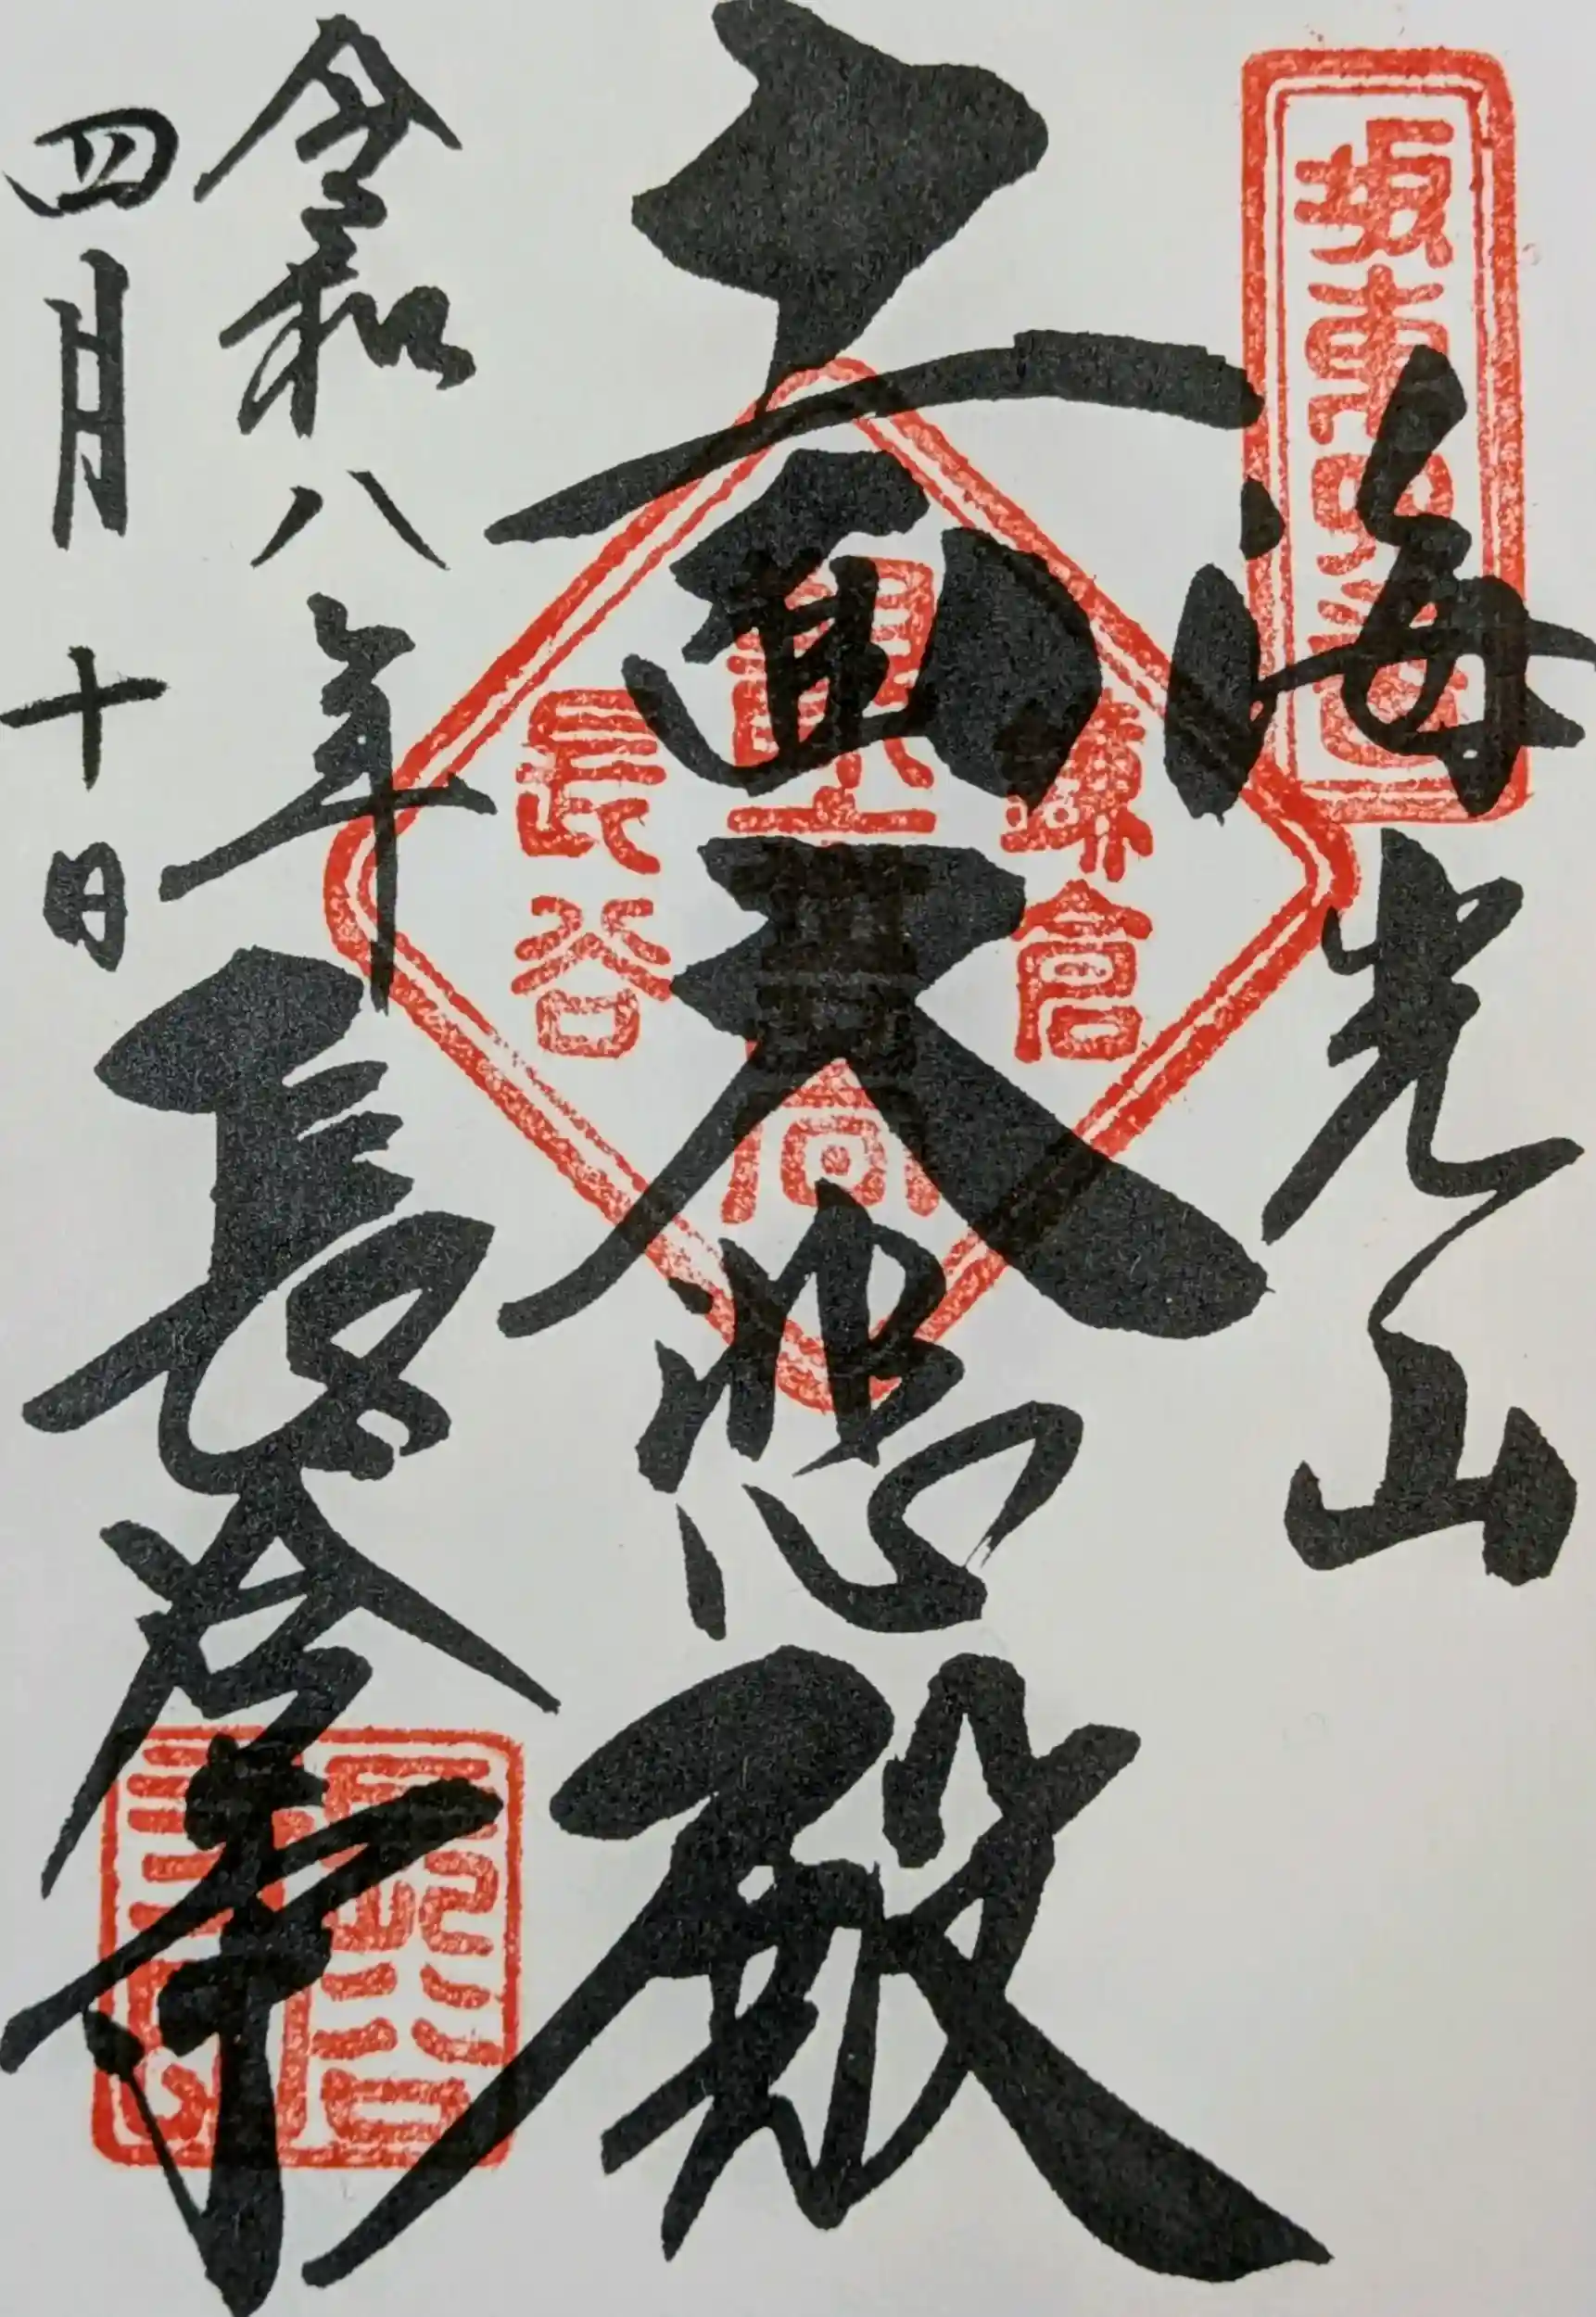 坂東四番
海光山
十一面大悲殿
鎌倉
長谷
令和八年
四月十日
長谷寺